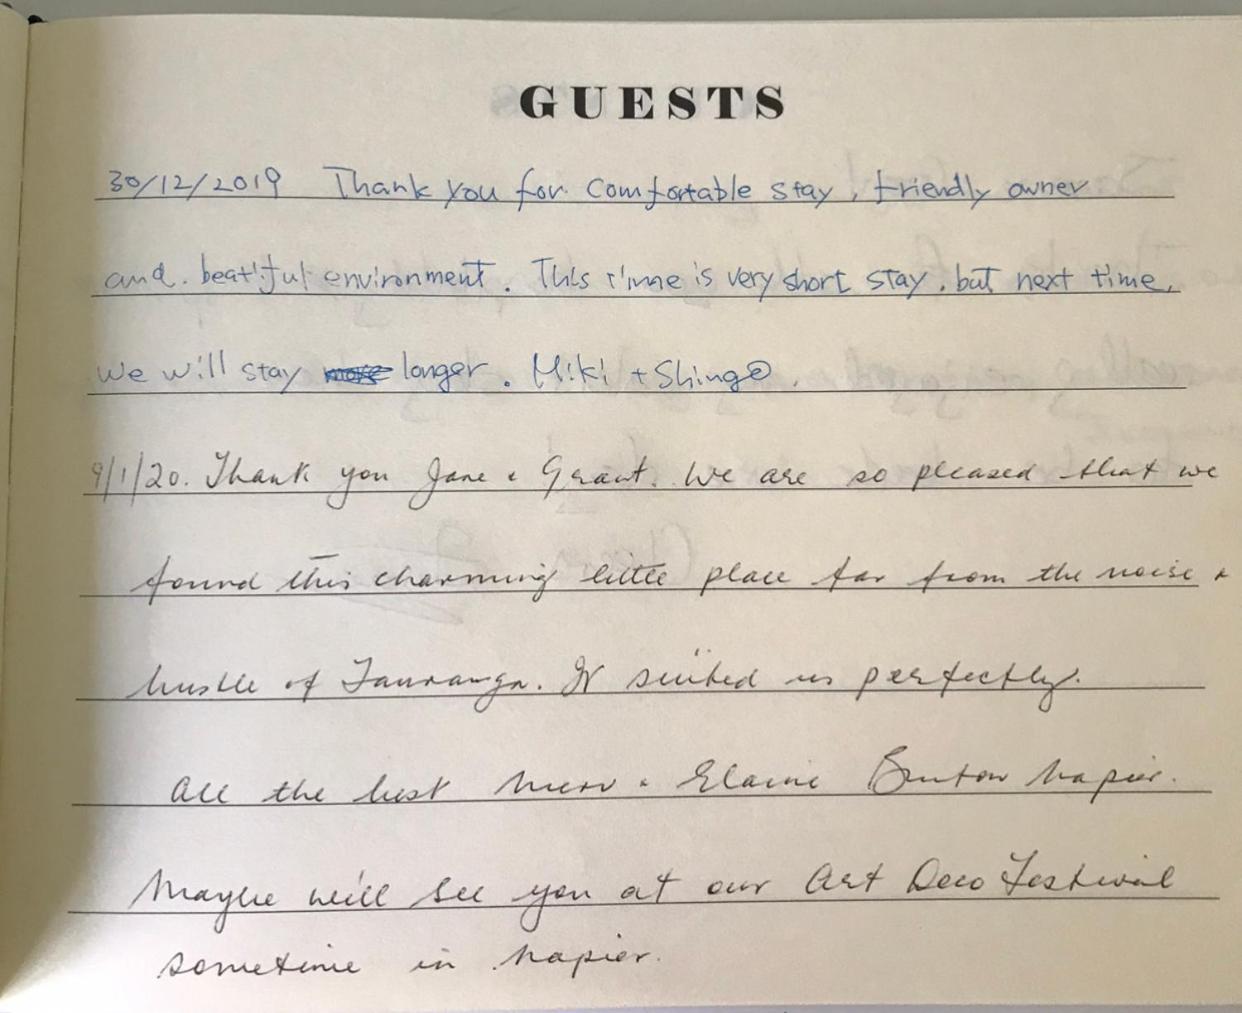 GUESTS
30/12/2019 Thank you for comfortable stay, friendly owner
and. beatiful environment. This time is very short stay, but next time,
We will stay longer. Miki + Shingo.
9/1/20. Thank you Jane & Grant. We are so pleased that we
found this charming little place far from the noise &
hustle of Tauranga. It suited us perfectly.
All the best Merv & Elaine Napier.
Maybe will see you at our Art Deco Festival
sometime in Napier.